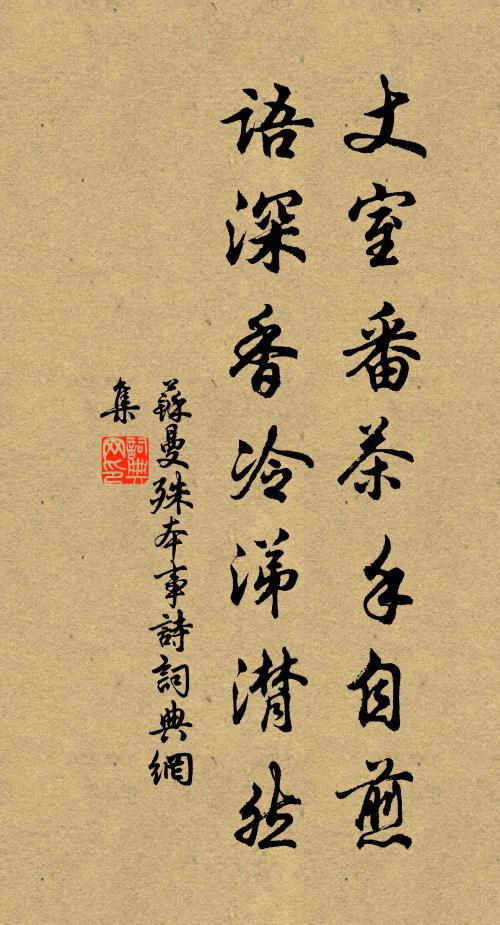 丈室番茶手自煎
语深香冷涕潸然
蘇曼殊本事詩詞典網
集
詞典网印